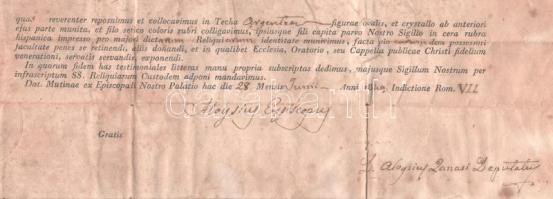 quas reverenter reposuimus et collocavimus in Theca Argentea figurae ovalis, et crystallo ab anteriori
ejus parte munita, et filo serico coloris rubri colligavimus, ipsiusque fili capita parvo Nostro Sigillo in cera rubra
hispanica impresso, pro majori dictarum Reliquiarum identitate munivimus, facta
facultate penes se retinendi, aliis donandi, et in qualibet Ecclesia, Oratorio, seu Cappella publicae Christi fidelium
venerationi, servatis servandis, exponendi.
In quorum fidem has testimoniales litteras manu propria subscriptas dedimus, majusque Sigillum Nostrum per
infrascriptum SS. Reliquiarum Custodem adponi mandavimus.
Dat. Mutinae ex Episcopali Nostro Palatio hac die 28 Mensis Junii Anni Indictione Rom. VII
Aloysius Episcopus
Gratis
Aloysius Deputatus